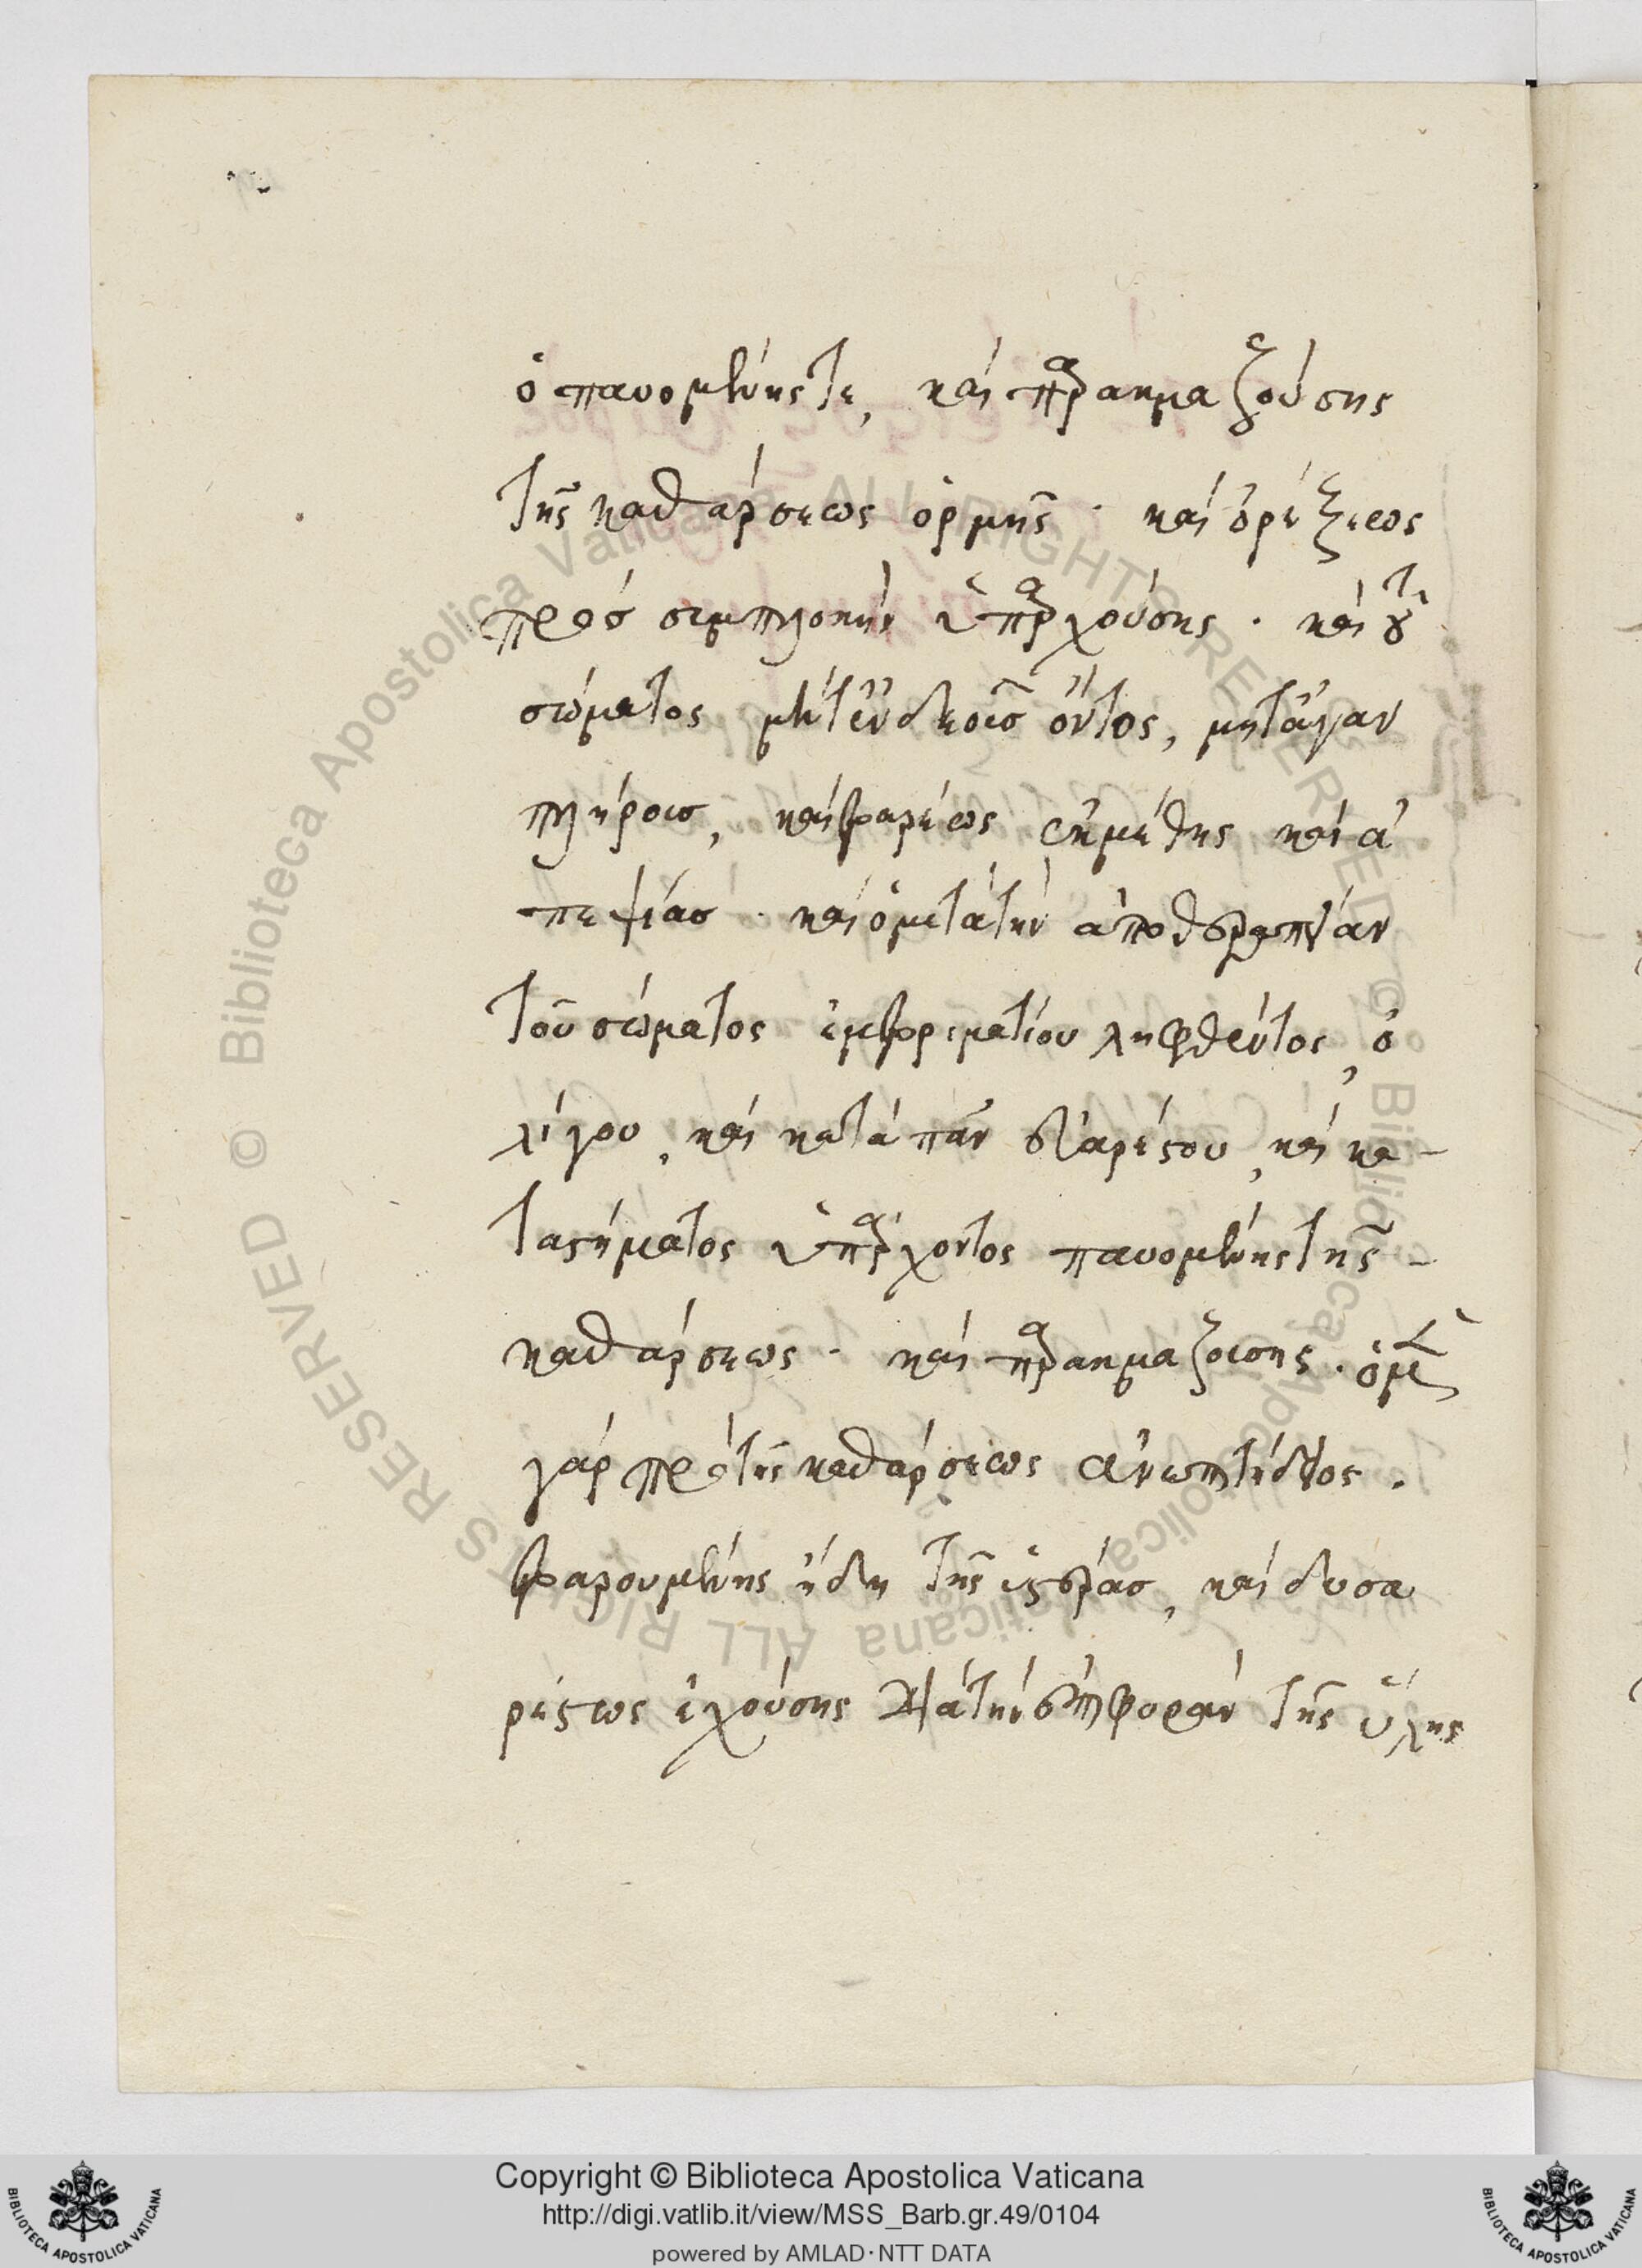 ὁ παυομένης τε, καὶ παρακμαζούσης
τῆς καθάρσεως ὁρμῆς · καὶ ὀρέξεως
πρὸσ συμπλοκὴν ὑπαρχούσης · καὶ τοῦ
σώματος μήτ' ἐνδεοῦσ ὄντος, μητ' ἄγαν
πλήρουσ, καὶ βαρέως ἐκ μέθης καὶ ἀ
πεψίασ · καὶ ὁ μετὰ τὴν ἀποθεραπείαν
τοῦ σώματος ἐμβρωματίου ληφθέντος, ὀ
λίγου, καὶ κατὰ πᾶν εὐαρέστου, καὶ κα-
ταστήματος ὑπάρχοντος παυομένης τῆς -
καθάρσεως · καὶ παρακμαζούσης · ὁ μὲν
γὰρ πρὸ τῆς καθάρσεως ἀνεπιτήδειος ·
βαρουμένης ἤδη τῆς ὑστέρασ, καὶ δυσα
ρέστως ἐχούσης κατὰ τὴν ἐπιφορὰν τῆς ὕλης
Copyright © Biblioteca Apostolica Vaticana
http://digi.vatlib.it/view/MSS_Barb.gr.49/0104
powered by AMLAD·NTT DATA
BIBLIOTECA APOSTOLICA VATICANA
BIBLIOTECA APOSTOLICA VATICANA
© Biblioteca Apostolica Vaticana ALL RIGHTS RESERVED
© Biblioteca Apostolica Vaticana ALL RIGHTS RESERVED